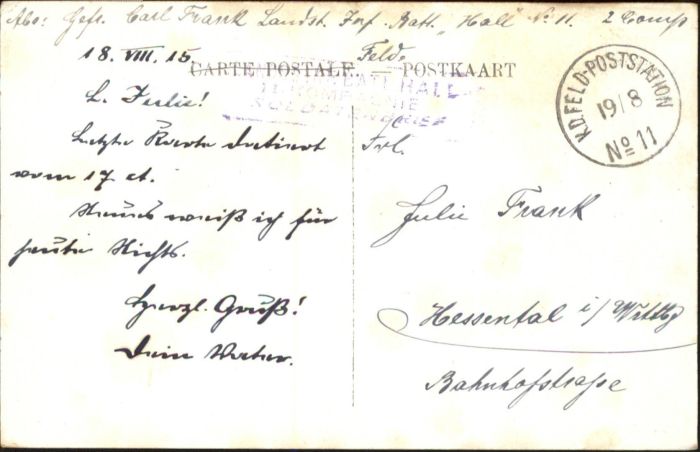 Abs: Gefr. Carl Frank Landst. Inf. Batt. „Hall" No 11. 2 Comp
18. VIII. 15.
Feldp.
CARTE POSTALE. — POSTKAART
BATT. HALL
II. KOMPAGNIE
SOLDATENBRIEF
K.D. FELD-POSTSTATION
19/8
No 11
L. Julie!
Letzte Karte datiert
vom 17. ct.
Neues weiß ich für
heute Nichts.
Herzl. Gruß!
Dein Vater.
Frl.
Julie Frank
Hessental i/Wrttbg
Bahnhofstrasse